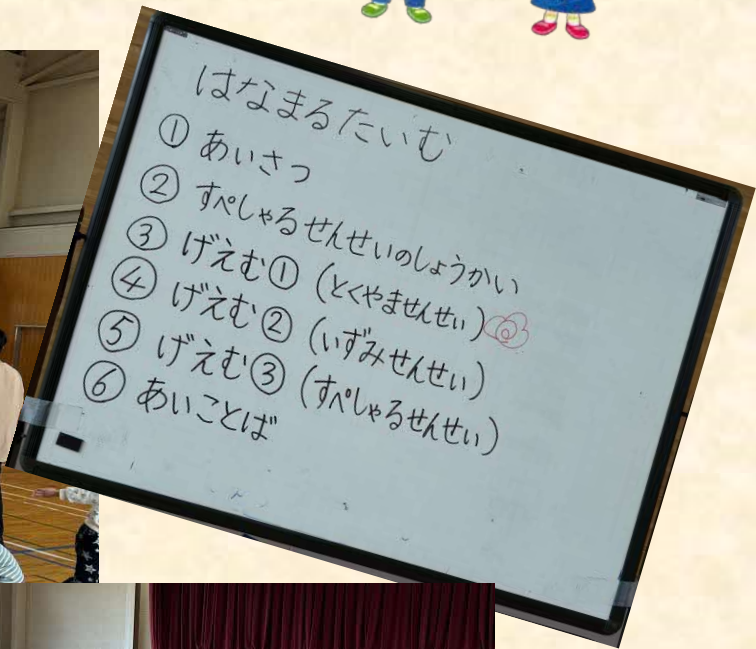 はなまるたいむ
① あいさつ
② すぺしゃるせんせいのしょうかい
③ げえむ① (とくやませんせい)
④ げえむ② (いずみせんせい)
⑤ げえむ③ (すぺしゃるせんせい)
⑥ あいことば